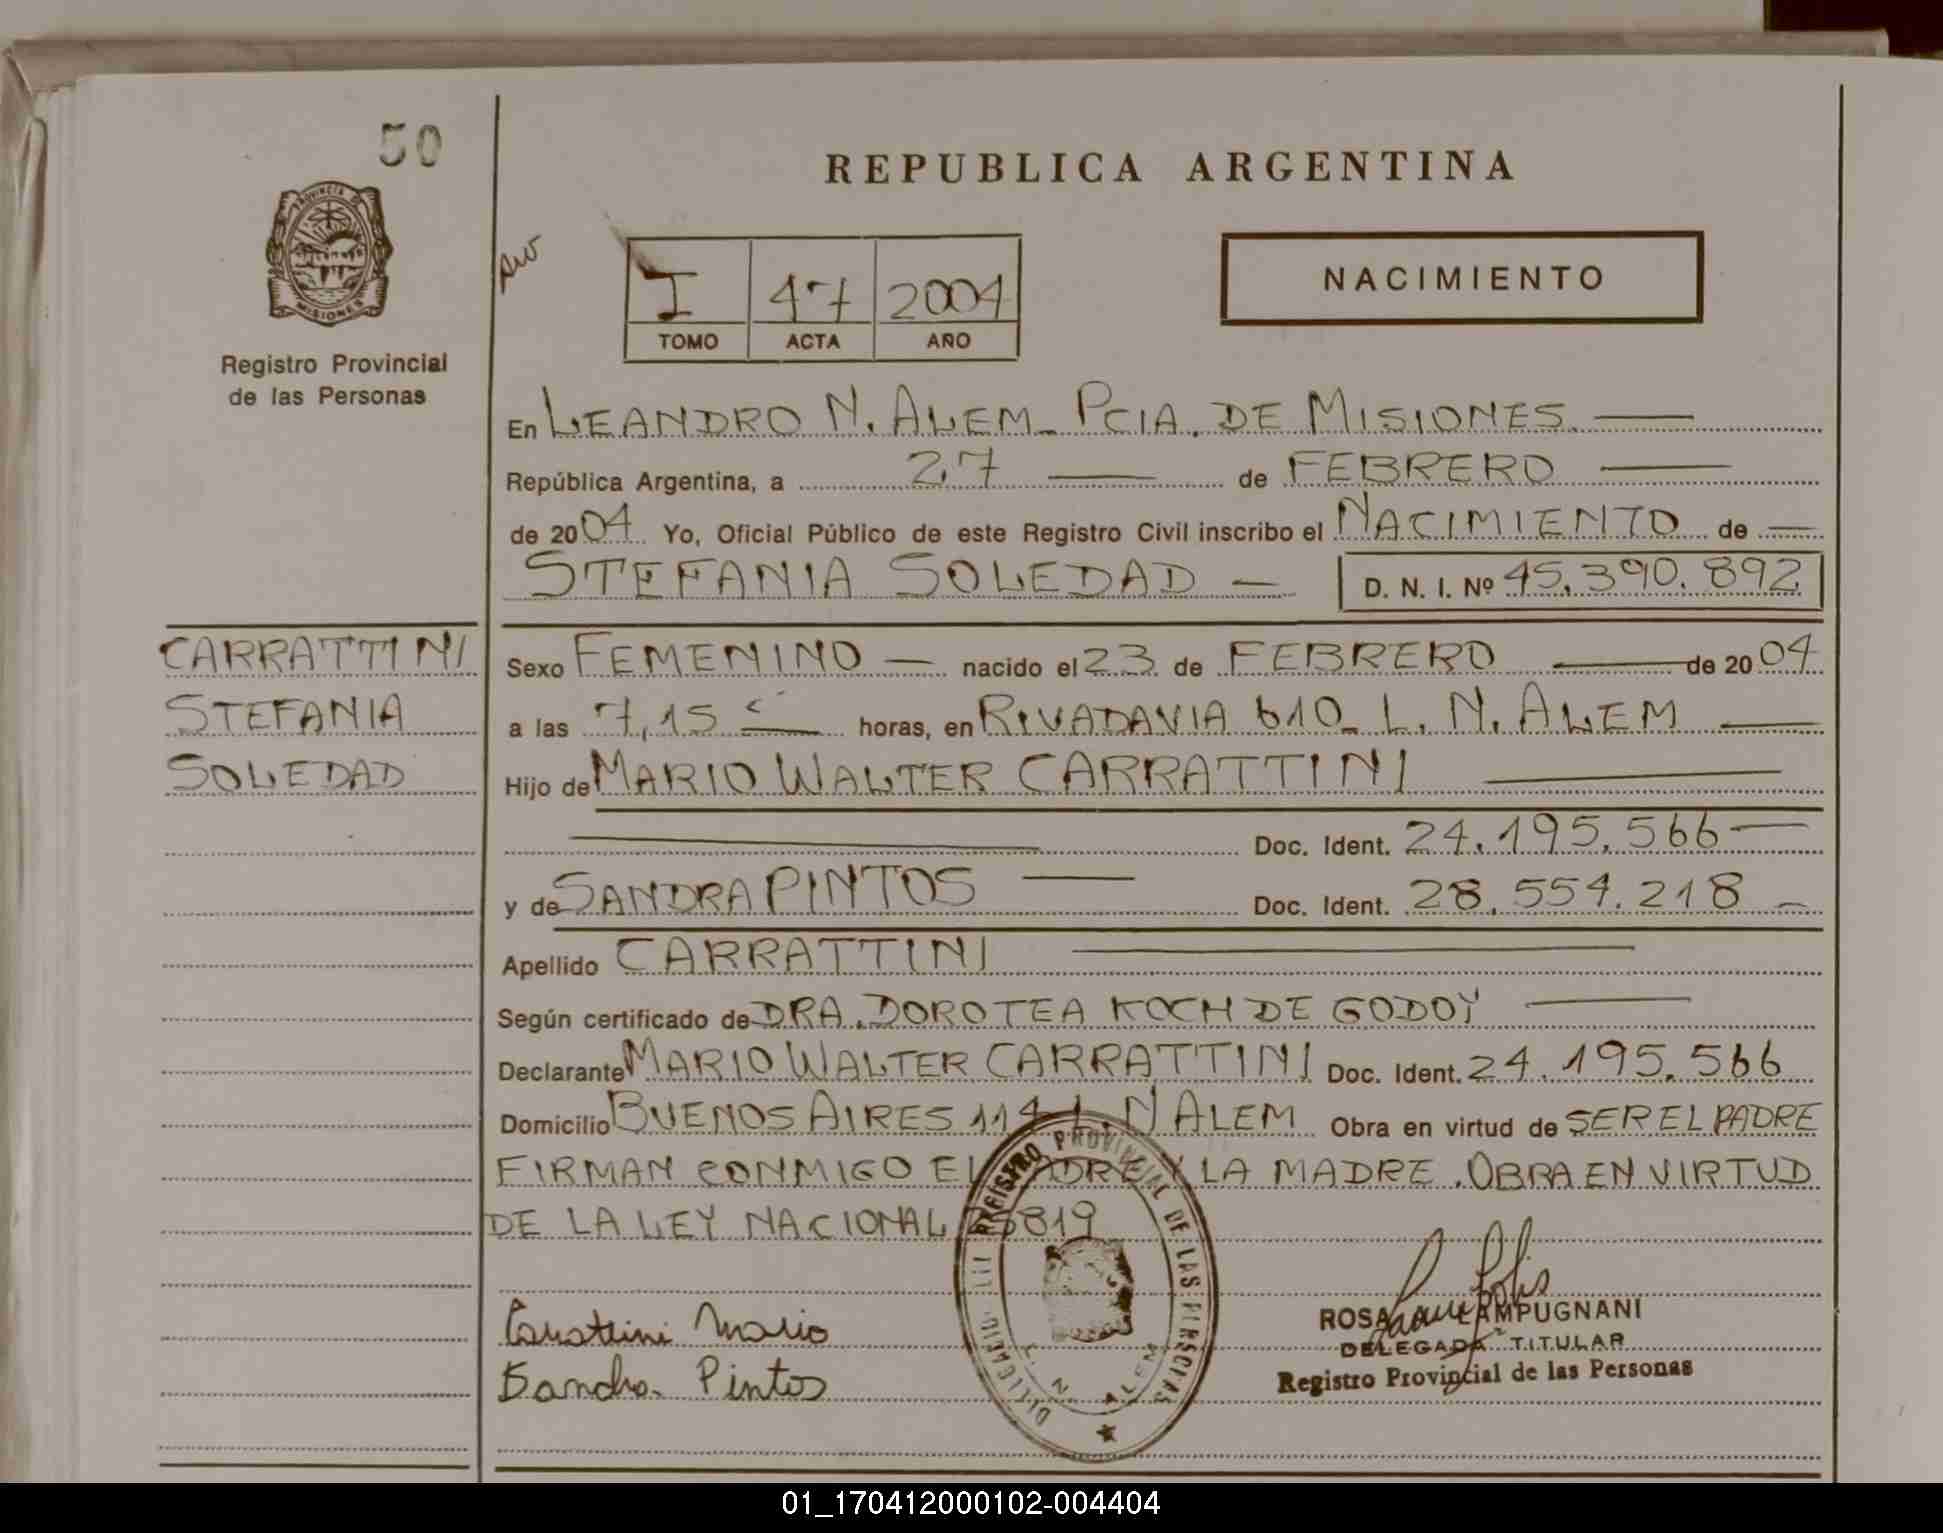 50
PROVINCIA DE
MISIONES
Registro Provincial
de las Personas
REPUBLICA ARGENTINA
I 47 2004
TOMO ACTA AÑO
NACIMIENTO
En LEANDRO N. ALEM_ PCIA. DE MISIONES.
República Argentina, a 27 de FEBRERO
de 2004 Yo, Oficial Público de este Registro Civil inscribo el NACIMIENTO de
STEFANIA SOLEDAD D. N. I. Nº 45.390.892
CARRATTINI
STEFANIA
SOLEDAD
Sexo FEMENINO nacido el 23 de FEBRERO de 2004
a las 7,15 horas, en RIVADAVIA 610_ L. N. ALEM
Hijo de MARIO WALTER CARRATTINI
Doc. Ident. 24.195.566
y de SANDRA PINTOS Doc. Ident. 28.554.218
Apellido CARRATTINI
Según certificado de DRA. DOROTEA KOCH DE GODOY
Declarante MARIO WALTER CARRATTINI Doc. Ident. 24.195.566
Domicilio BUENOS AIRES 114 L. N ALEM Obra en virtud de SER EL PADRE
FIRMAN CONMIGO EL PADRE Y LA MADRE. OBRA EN VIRTUD
DE LA LEY NACIONAL 25819
Carattini Mario
Sandra Pintos
REGISTRO PROVINCIAL DE LAS PERSONAS
L. N. ALEM
ROSA LAMPUGNANI
DELEGADA TITULAR
Registro Provincial de las Personas
01_170412000102-004404